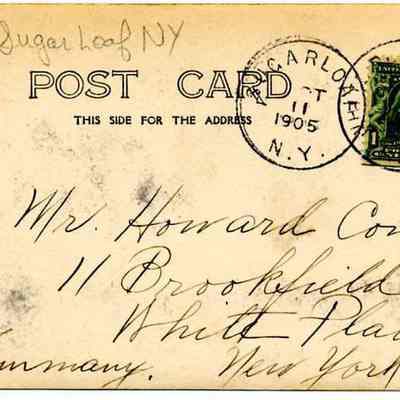 Sugar Loaf NY
POST CARD
THIS SIDE FOR THE ADDRESS
SUGARLOAF
OCT
11
1905
N.Y.
1
Mr. Howard Con
11 Brookfield
White Plai
New York